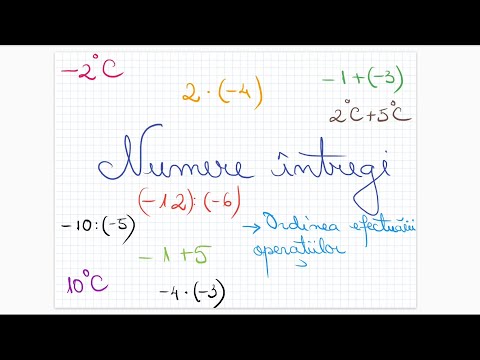 -2°C
2 · (-4)
-1+(-3)
2°C+5°C
Numere întregi
(-12):(-6)
-10:(-5)
→ Ordinea efectuării
operațiilor
-1+5
10°C
-4 · (-3)